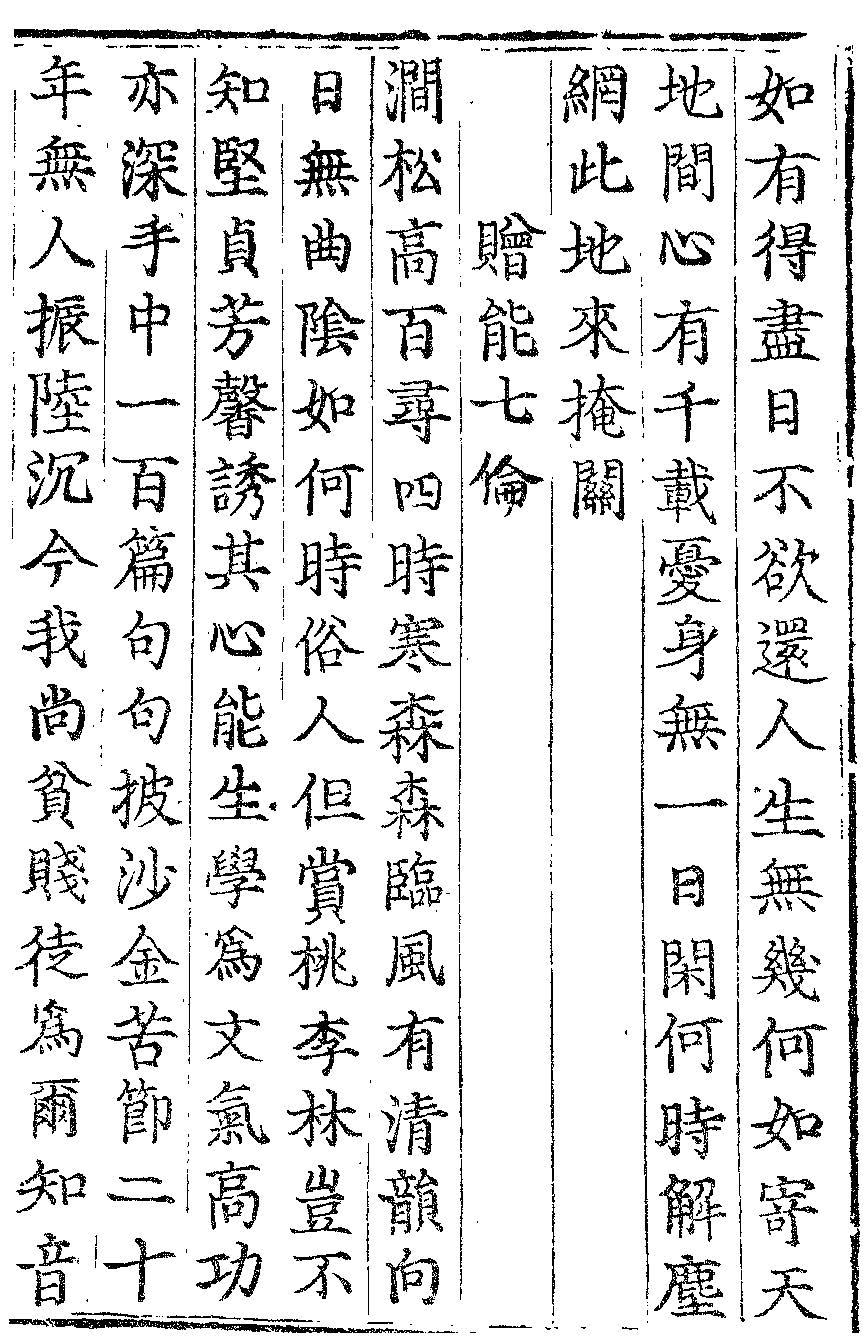 如有得盡日不欲還人生無幾何如寄天
地間心有千載憂身無一日閑何時解塵
網此地來掩關
贈能七倫
澗松高百尋四時寒森森臨風有清韻向
日無曲陰如何時俗人但賞桃李林豈不
知堅貞芳馨誘其心能生學爲文氣高功
亦深手中一百篇句句披沙金苦節二十
年無人振陸沉今我尚貧賤徒爲爾知音